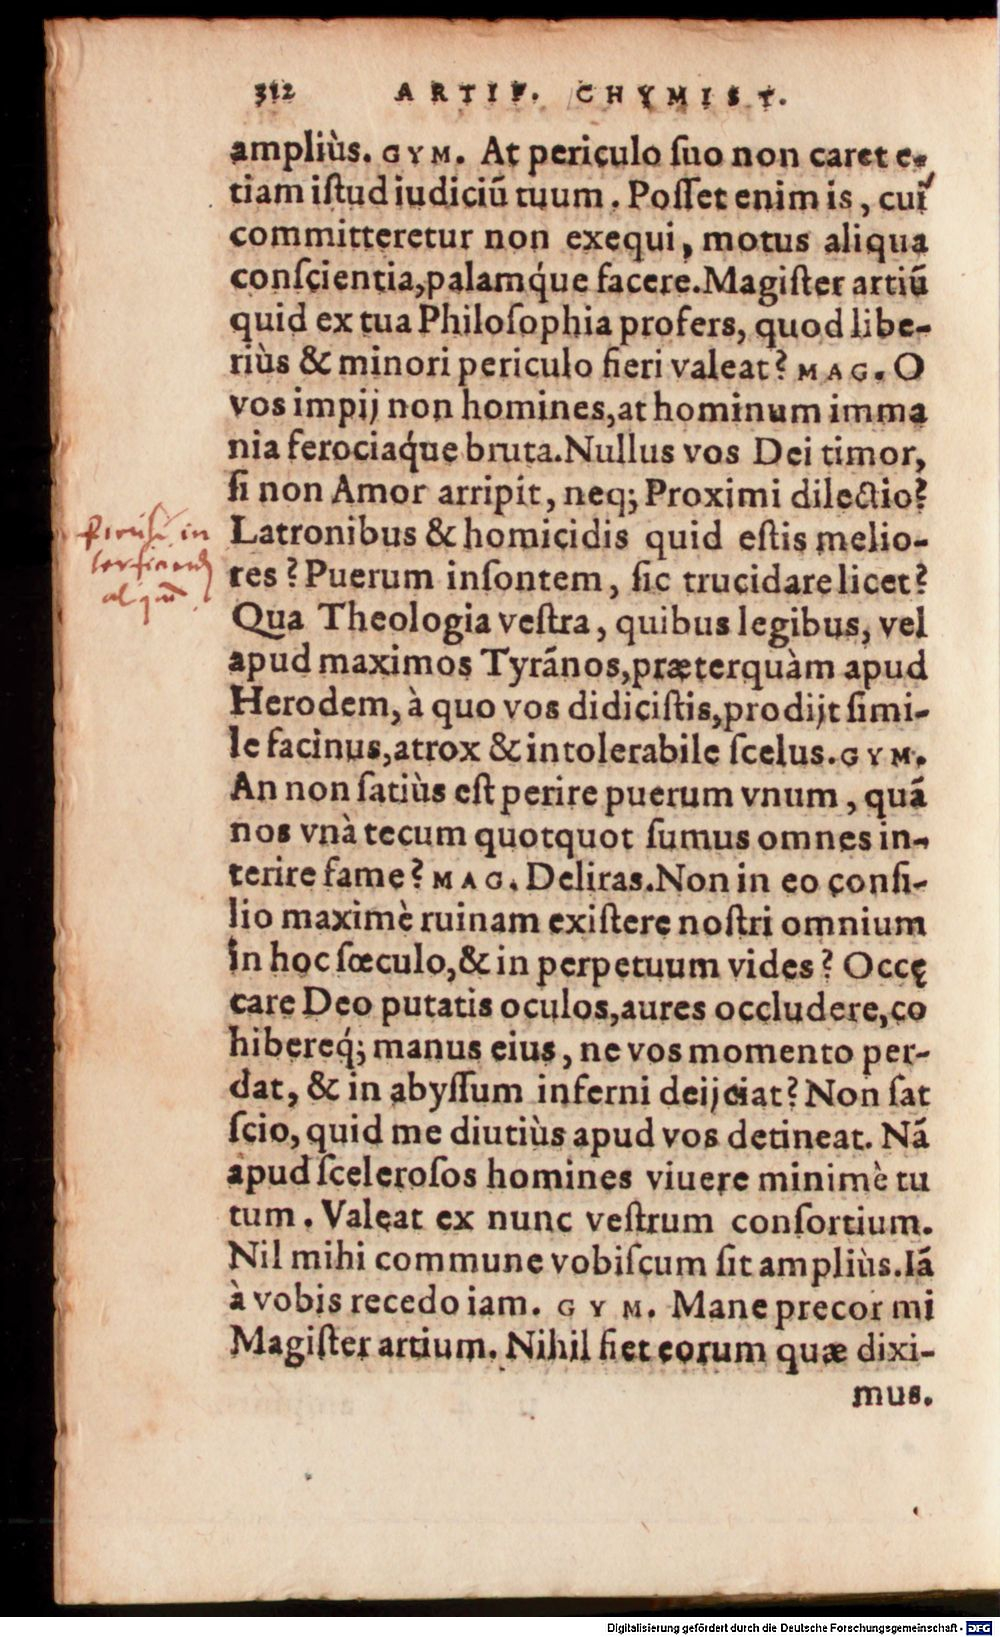 312 ARTIF. CHYMIST.
ampliùs. GYM. At periculo ſuo non caret e-
tiam iſtud iudiciũ tuum. Poſſet enim is, cui
committeretur non exequi, motus aliqua
conſcientia, palamq́ue facere. Magiſter artiũ
quid ex tua Philoſophia profers, quod libe-
riùs & minori periculo fieri valeat? MAG. O
vos impij non homines, at hominum imma
nia ferociaq́ue bruta. Nullus vos Dei timor,
ſi non Amor arripit, neq; Proximi dilectio?
Latronibus & homicidis quid eſtis melio-
res? Puerum inſontem, ſic trucidare licet?
Qua Theologia veſtra, quibus legibus, vel
apud maximos Tyrãnos, præterquàm apud
Herodem, à quo vos didiciſtis, prodijt ſimi-
le facinus, atrox & intolerabile ſcelus. GYM.
An non ſatiùs eſt perire puerum vnum, quã
nos vnà tecum quotquot ſumus omnes in-
terire fame? MAG. Deliras. Non in eo conſi-
lio maximè ruinam exiſtere noſtri omnium
in hoc ſœculo, & in perpetuum vides? Occę
care Deo putatis oculos, aures occludere, co
hibereq́; manus eius, ne vos momento per-
dat, & in abyſſum inferni deijciat? Non ſat
ſcio, quid me diutiùs apud vos detineat. Nã
apud ſceleroſos homines viuere minimè tu
tum. Valeat ex nunc veſtrum conſortium.
Nil mihi commune vobiſcum ſit ampliùs. Iã
à vobis recedo iam. GYM. Mane precor mi
Magiſter artium. Nihil fiet eorum quæ dixi-
mus.
in
Digitalisierung gefördert durch die Deutsche Forschungsgemeinschaft - DFG